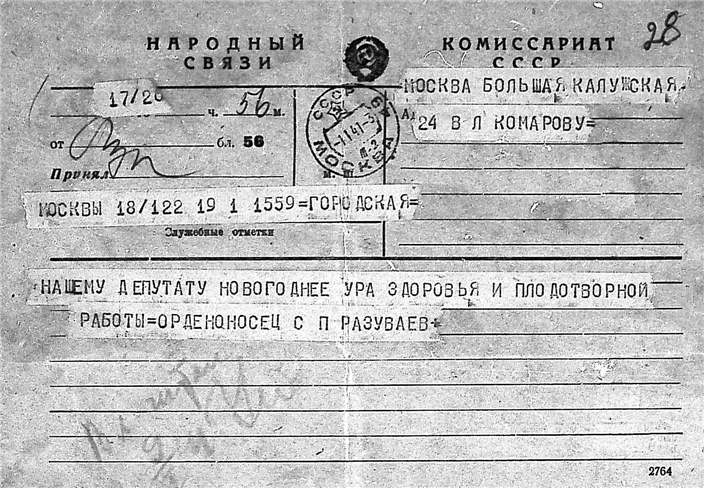 28
НАРОДНЫЙ
СВЯЗИ
КОМИССАРИАТ
СССР
17/20
ч. 56 м.
от
бл. 56
Принял
СССР
МОСКВА
МОСКВА БОЛЬШАЯ КАЛУЖСКАЯ
24 В Л КОМАРОВУ=
МОСКВЫ 18/122 19 1 1559=ГОРОДСКАЯ=
Служебные отметки
НАШЕМУ ДЕПУТАТУ НОВОГОДНЕЕ УРА ЗДОРОВЬЯ И ПЛОДОТВОРНОЙ
РАБОТЫ=ОРДЕНОНОСЕЦ С П РАЗУВАЕВ+
2764